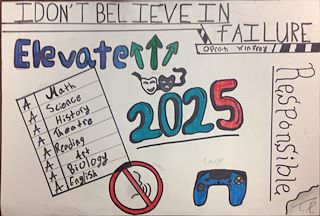 I DON'T BELIEVE IN
FAILURE
Oprah Winfrey
Elevate
2025
Responsible
A Math
A Science
A History
A Theatre
A Reading
A Art
A Biology
A English
T.R.